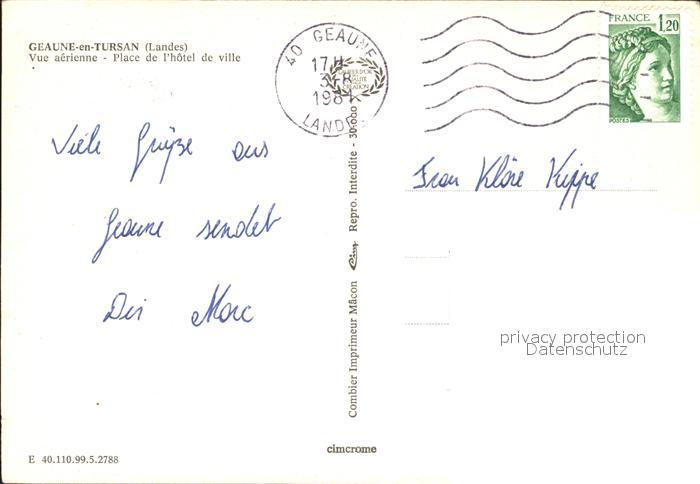 GEAUNE-en-TURSAN (Landes)
Vue aérienne - Place de l'hôtel de ville
40 GEAUNE
17H
3-8
1981
LANDES
FRANCE
1,20
POSTES
Viele Grüsse aus
Geaune sendet
Dir Marc
Frau Kläre Kippe
Combier Imprimeur Mâcon Cim Repro. Interdite - 30.000
privacy protection
Datenschutz
cimcrome
E 40.110.99.5.2788